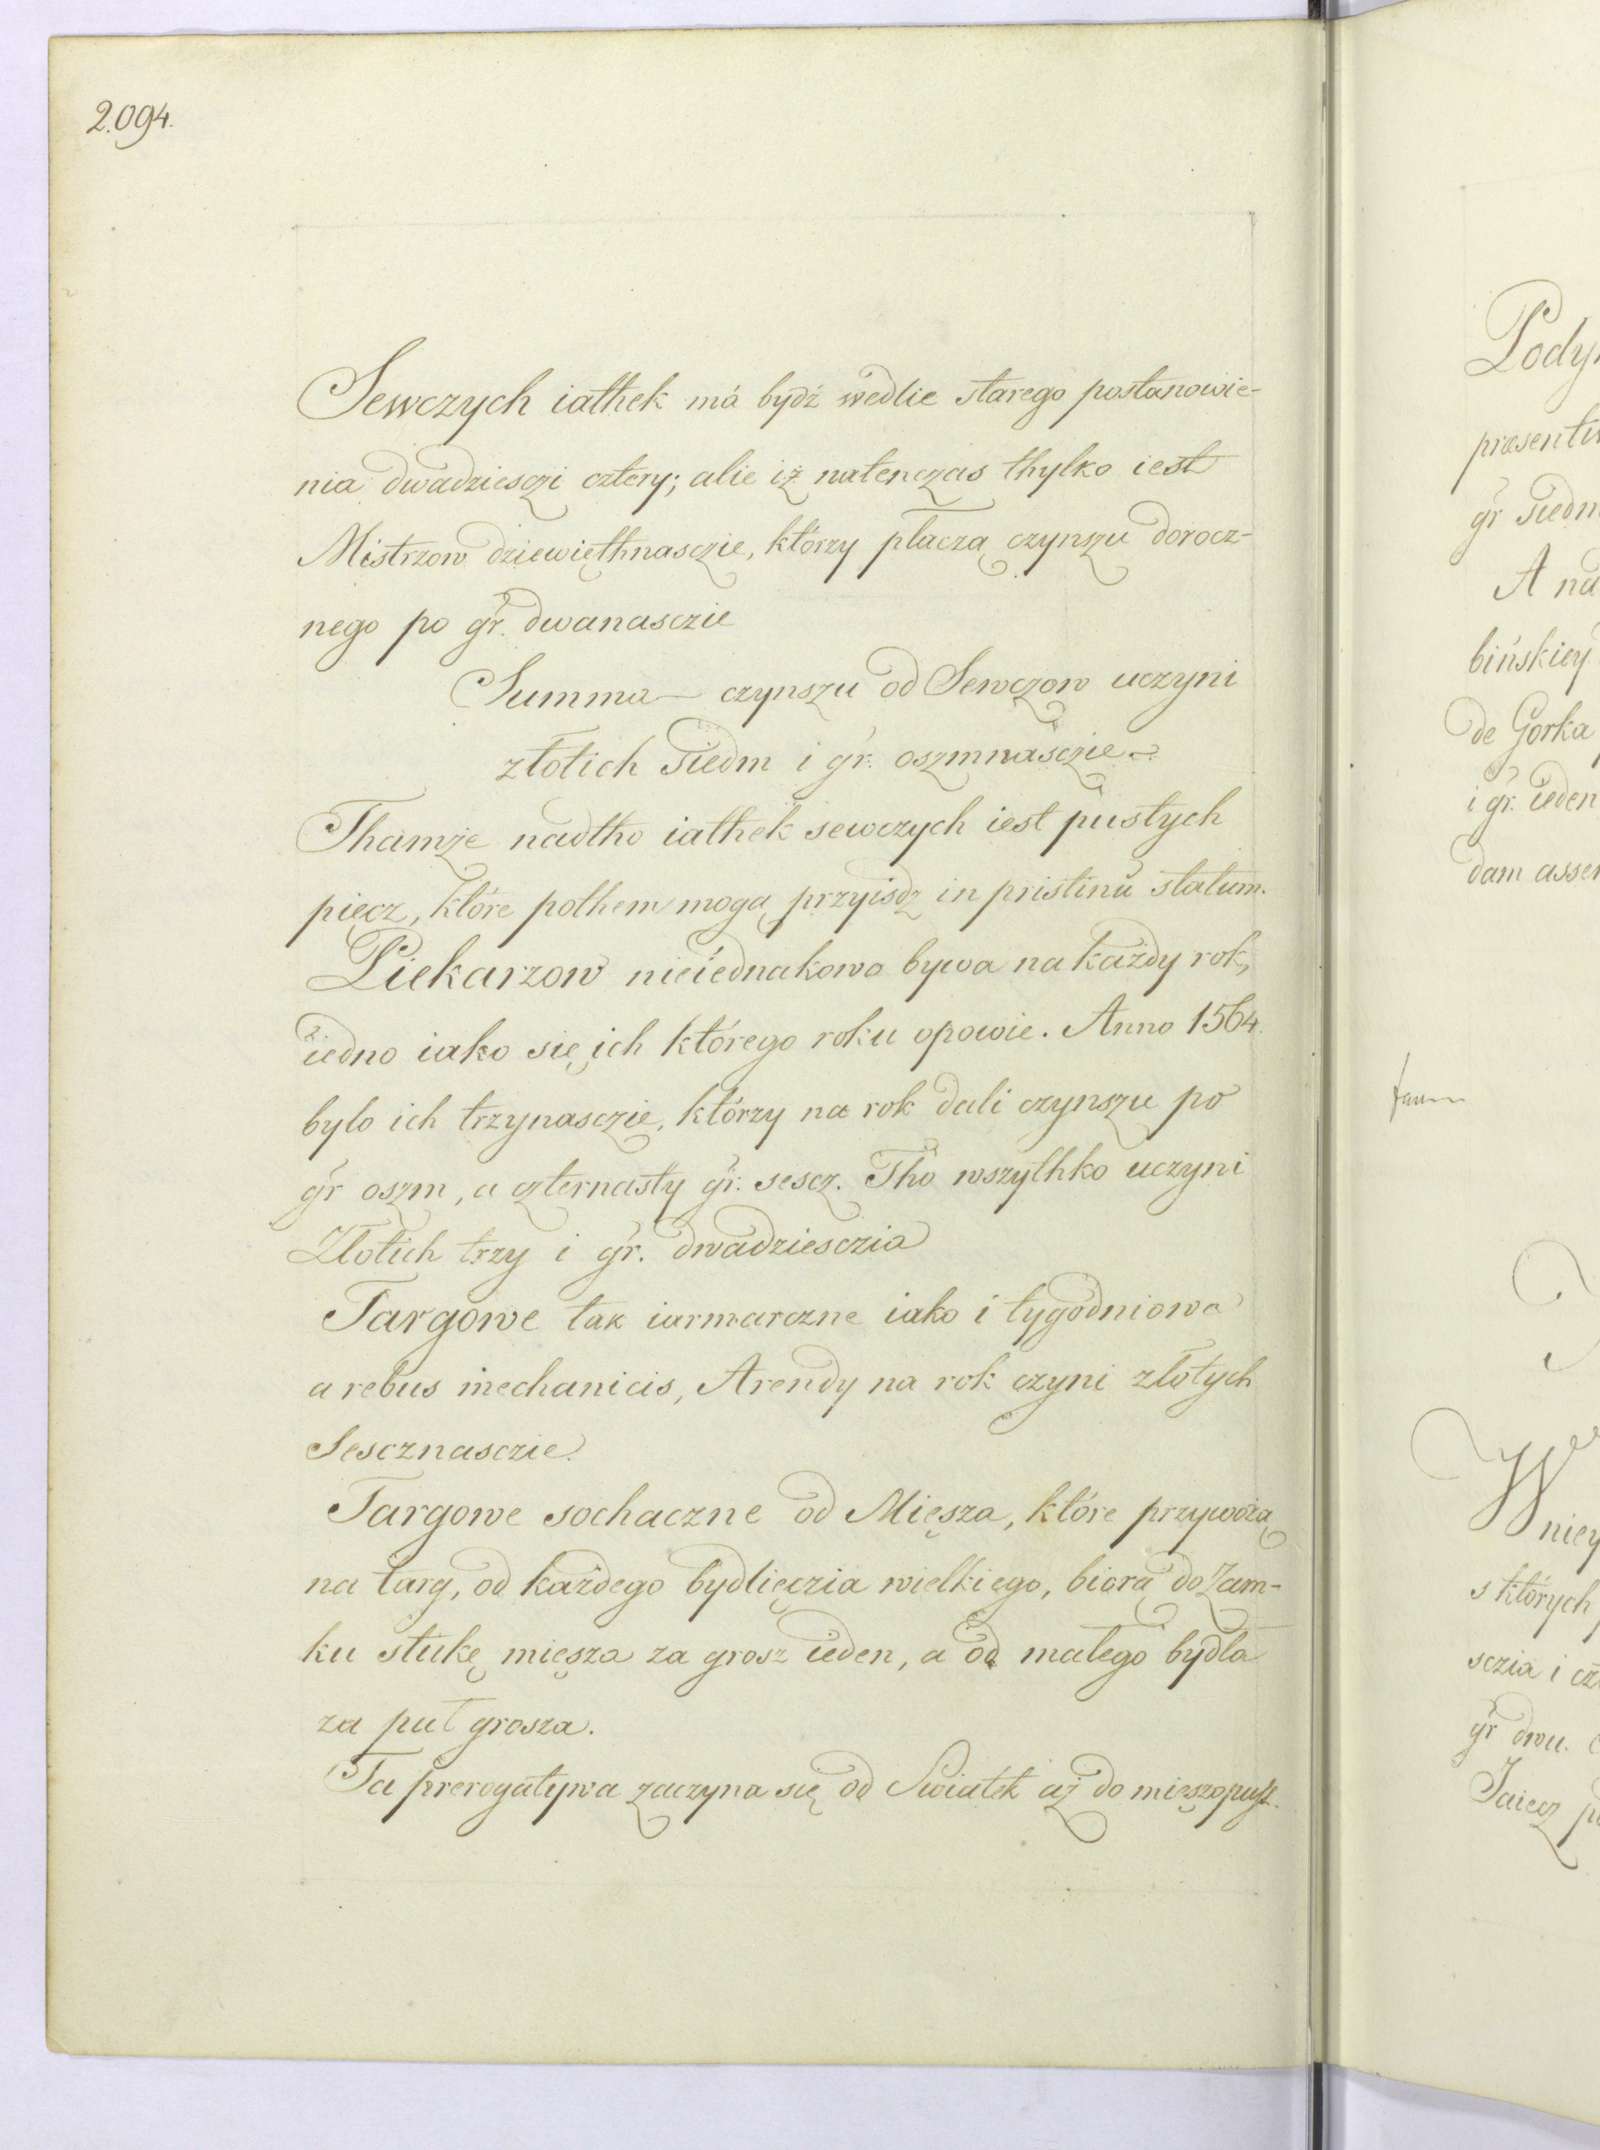 2.094.
Sewczych iathek má bydź wedlie starego postanowie-
nia dwadziesczi cztery; alie iż natenczas thylko iest
Mistrzow dziewięthnasczie, którzy płaczą czynszu dorocz-
nego po gr. dwanasczie
Summa czynszu od Sewczow uczyni
złotich siedm i gr. oszmnasczie
Thamże nadtho iathek sewczych iest pustych
pięcz, które pothem mogą przyisdz in pristinú statum.
Piekarzow nieiednakowo bywa na każdy rok,
iedno iako się ich którego roku opowie. Anno 1564.
bylo ich trzynasczie, którzy na rok dali czynszu po
gr oszm, a czternasty gr. sescz. Tho wszythko uczyni
Złotich trzy i gr. dwadziesczia
Targowe tak iarmarczne iako i tygodniowe
a rebus mechanicis, Arendy na rok czyni złotych
Sescznasczie.
Targowe sochaczne od Mięsza, które przywożą
na targ, od każdego bydlięczia wielkiego, biorą do Zam-
ku stukę mięsza za grosz ieden, a od małego bydła
za puł grosza.
Ta prerogatywa zaczyna się od Swiatek aż do mięszopust.
Pody
presenti
gr siedm
A na
bińskiey
de Gorka
i gr. ieden
dam asser
W niey
s których
sczia i cz
gr dwu.
Jaiecz p